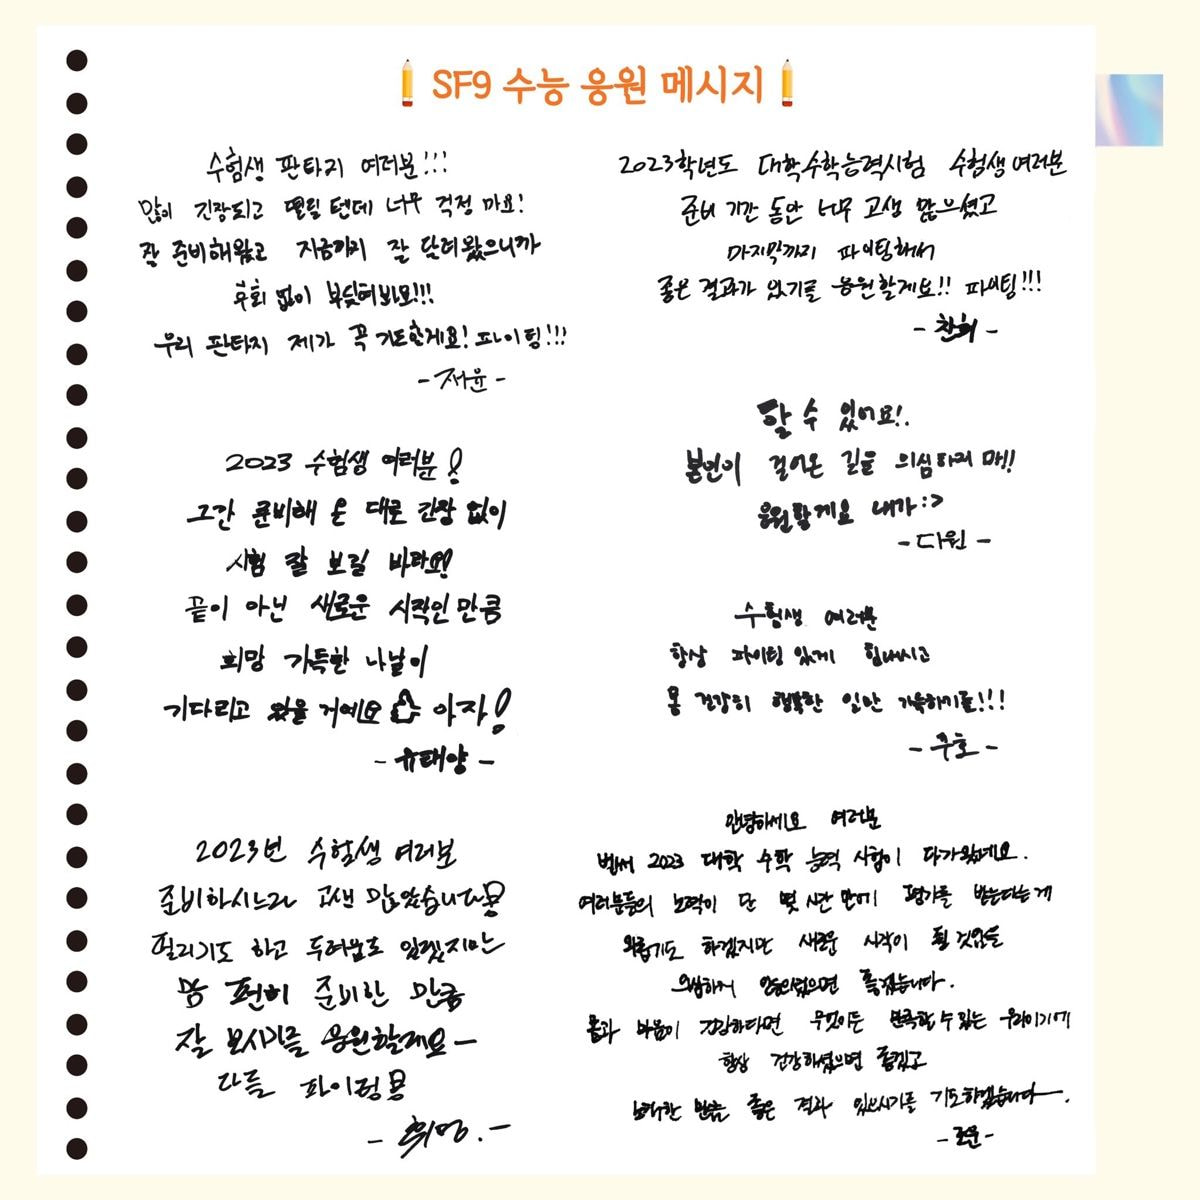 SF9 수능 응원 메시지
수험생 판타지 여러분!!!
많이 긴장되고 떨릴 텐데 너무 걱정 마요!
잘 준비해왔고 지금까지 잘 달려왔으니까
후회 없이 부딪혀봐요!!!
우리 판타지 제가 꼭 기도할게요! 파이팅!!!
-재윤-
2023 수험생 여러분!
그간 준비해 온 대로 긴장 없이
시험 잘 보길 바라요!
끝이 아닌 새로운 시작인 만큼
희망 가득한 나날이
기다리고 있을 거예요 아자!
-유태양-
2023년 수험생 여러분
준비하시느라 고생 많았습니다!
떨리기도 하고 두려움도 있겠지만
몸 편히 준비한 만큼
잘 보시기를 응원할게요-
다들 파이팅!
-휘영.-
2023학년도 대학수학능력시험 수험생 여러분
준비 기간 동안 너무 고생 많으셨고
마지막까지 파이팅해서
좋은 결과가 있기를 응원할게요!! 파이팅!!!
-찬희-
할 수 있어요!.
본인이 걸어온 길을 의심하지 마!!
응원할게요 내가:>
-다원-
수험생 여러분
항상 파이팅 있게 힘내시고
몸 건강히 행복한 일만 가득하기를!!!
-주호-
안녕하세요 여러분
벌써 2023 대학 수학 능력 시험이 다가왔네요.
여러분들의 노력이 단 몇 시간 만에 평가를 받는다는게
외롭기도 하겠지만 새로운 시작이 될 것임을
생각하며 임하셨으면 좋겠습니다.
몸과 마음이 건강하다면 무엇이든 만족할 수 있는 우리이기에
항상 건강하셨으면 좋겠고
노력한 만큼 좋은 결과 있으시기를 기도하겠습니다.
-로운-